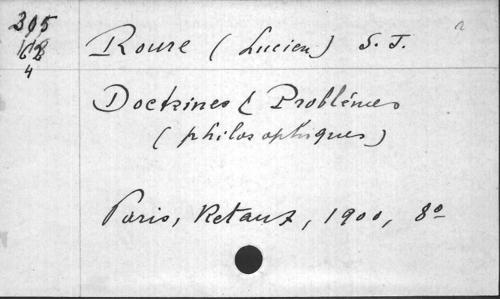 305
4
Roure (Lucien) S. J.
Doctrines & Problèmes
(philosophiques)
Paris, Retaux, 1900, 8º